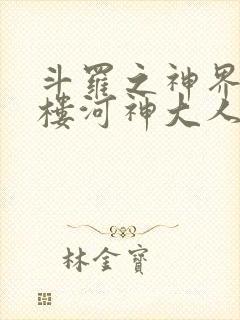 斗羅之神界
樓河神大人
林金寶